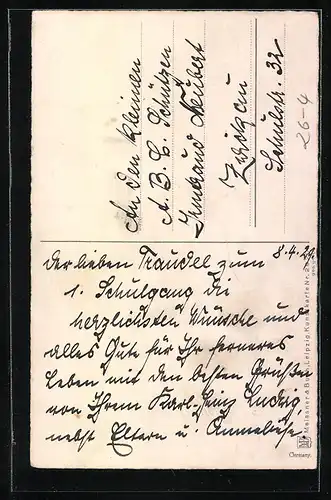 An den kleinen
A. B. C. Schützen
Irmtraud Neubert
Zwickau
Schulstr. 32
26-4
8.4.29.
Der lieben Traudel zum
1. Schulgang die
herzlichsten Wünsche und
alles Gute für Ihr ferneres
Leben mit den besten Grüßen
von Ihrem Karl-Heinz Ludwig
nebst Eltern u. Anneliese
Meissner & Buch, Leipzig, Künstlerkarte Nr.
Germany.